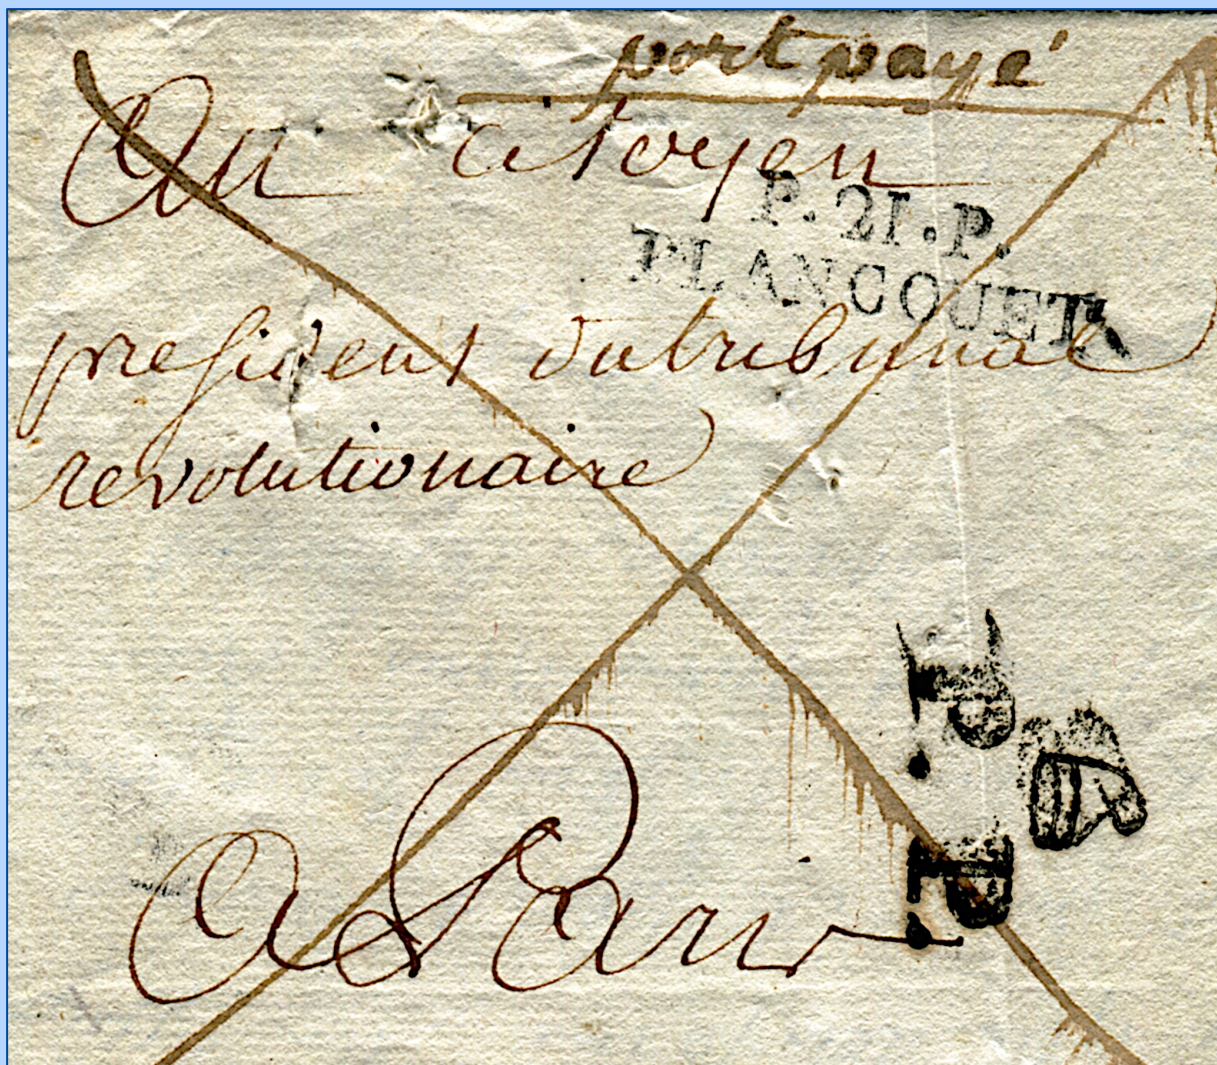 port payé
Au citoyen
P. 21. P.
PLANCOUET
president du tribunal
revolutionaire
a Paris
P. P. P.